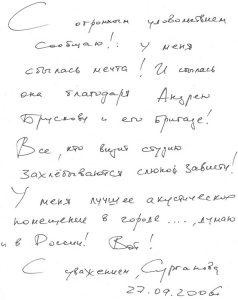 С огромным удовольствием
сообщаю!: У меня
сбылась мечта! И сбылась
она благодаря Андрею
Брускову и его бригаде!
Все, кто видит студию
захлёбываются слюной зависти!
У меня лучшее акустическое
помещение в городе...., думаю
и в России! Вот!
С уважением, Сурганова
27.09.2006